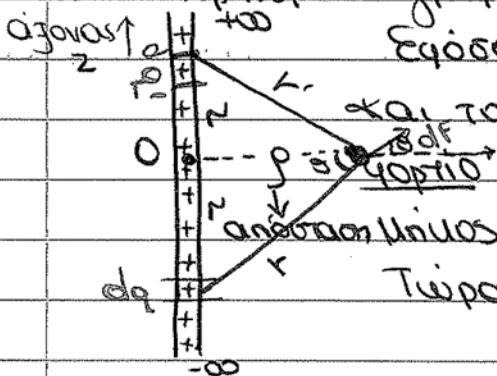 άξονας
z
+∞
Εφόσ
dq
r
z
και το
dF
O
ρ
φορτίο
z
απόσταση, μήκος
r
dq
Τώρα
-∞